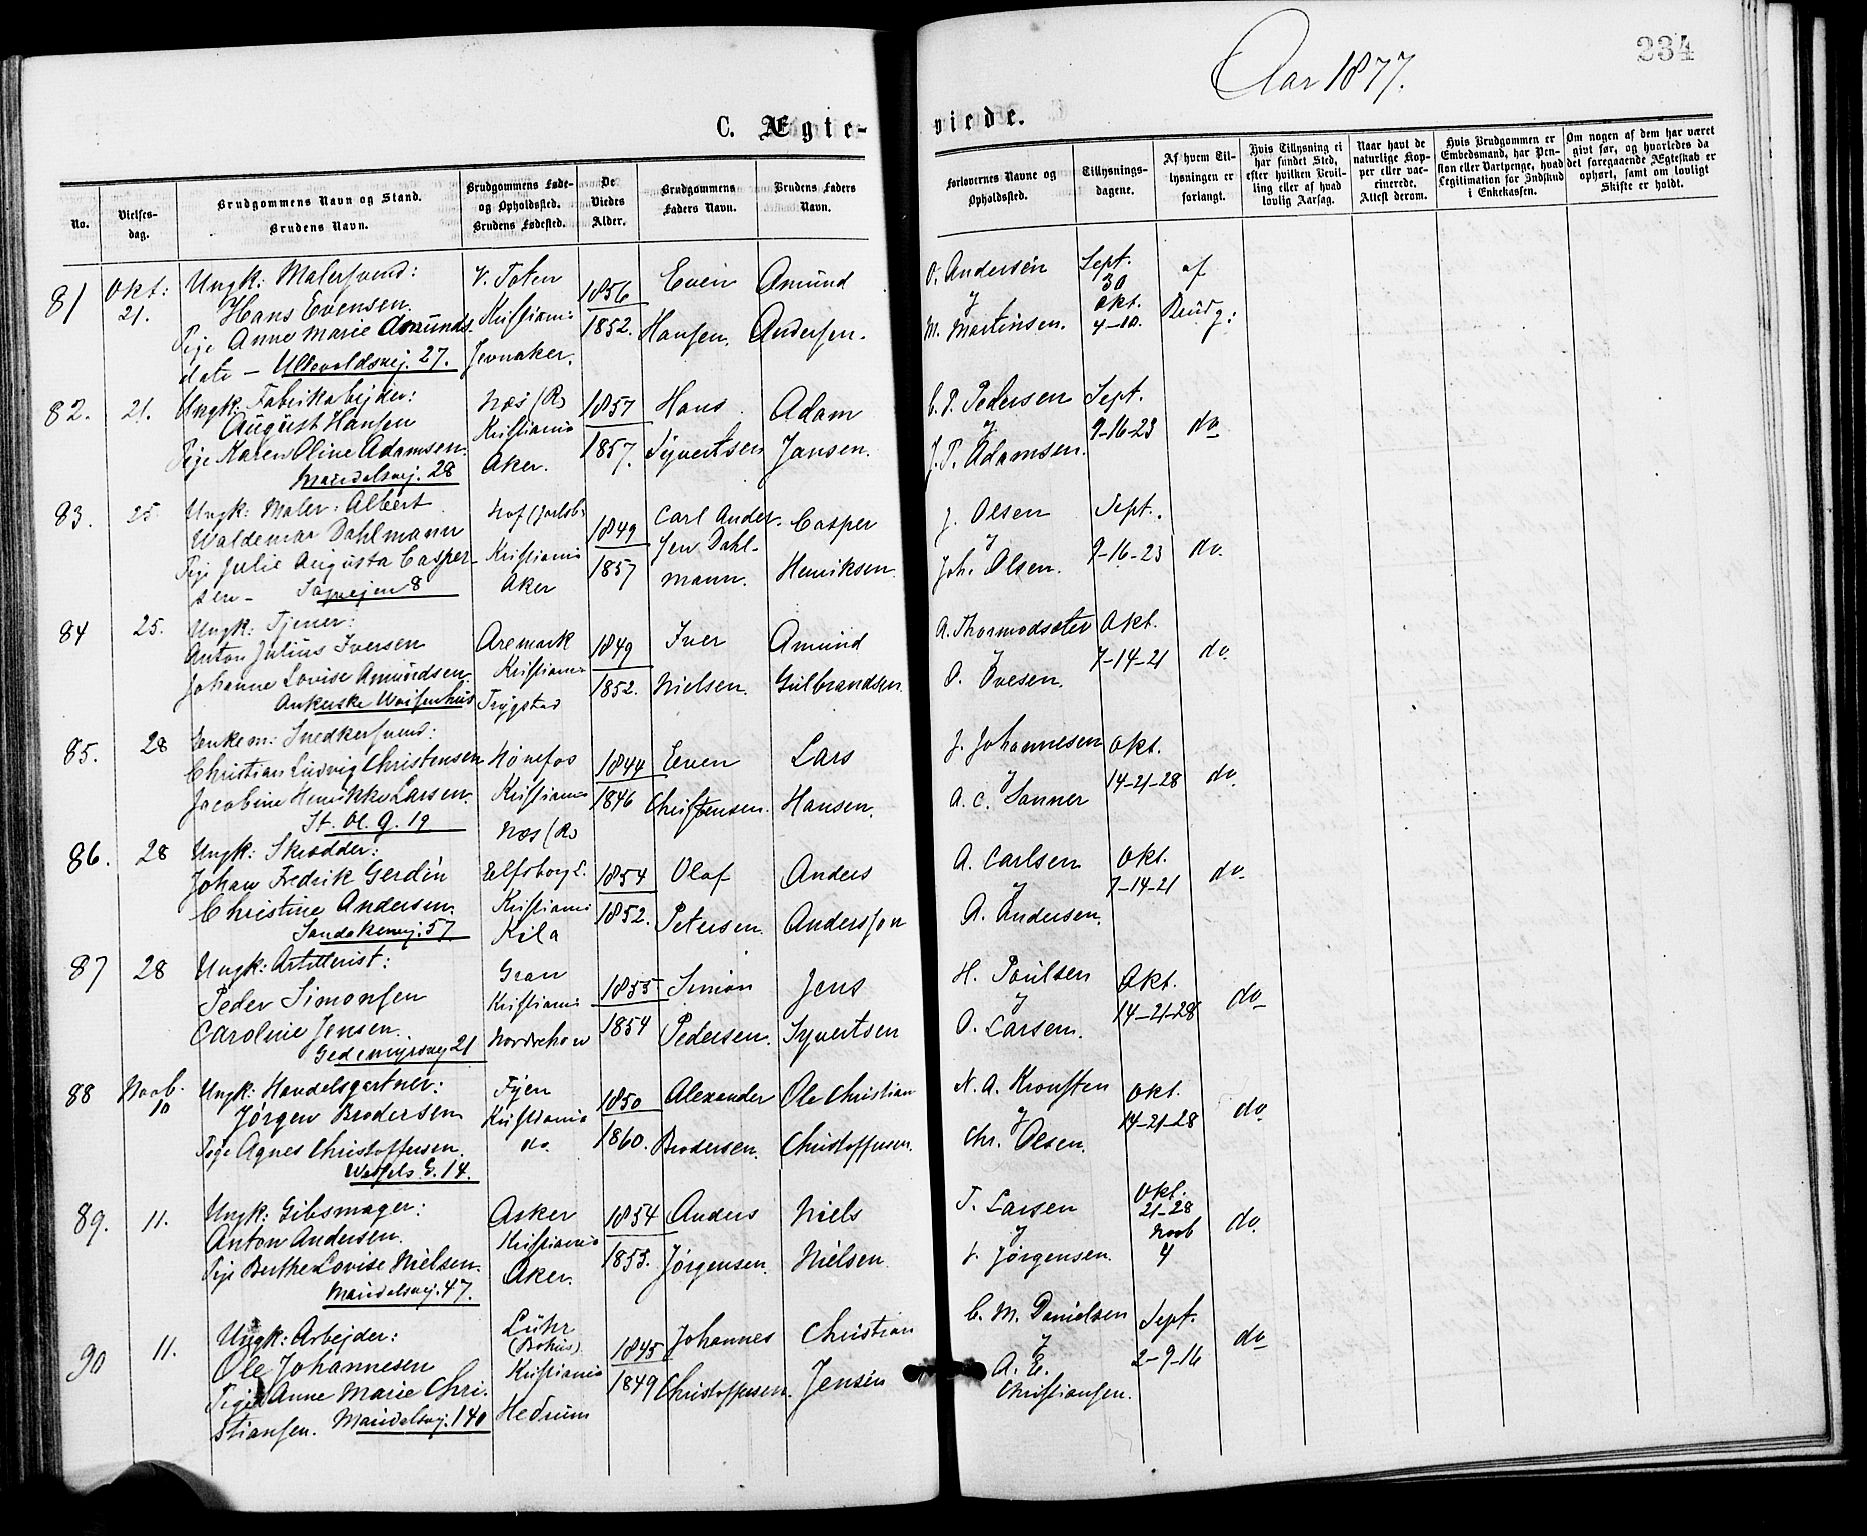 234
Aar 1877.
C. Ægte-
viede.
No.
Vielses-
dag.
Brudgommens Navn og Stand.
Brudens Navn.
Brudgommens Føde-
og Opholdssted.
Brudens Fødested.
De
Viedes
Alder.
Brudgommens
Faders Navn.
Brudens Faders
Navn.
Forlovernes Navne og
Opholdssted.
Tillysnings-
dagene.
Af hvem Til-
lysningen er
forlangt.
Hvis Tillysning ei
har fundet Sted,
efter hvilken Bevil-
ling eller af hvad
lovlig Aarsag.
Naar havt de
naturlige Kop-
per eller vac-
cinerede.
Attest derom.
Hvis Brudgommen er
Embedsmand, har Pen-
sion eller Vartpenge, hvad
Legitimation for Indskud
i Enkekassen.
Om nogen af dem har været
gift før, og hvorledes da
det foregaaende Ægteskab er
ophørt, samt om lovligt
Skifte er holdt.
81
Okt:
21.
Ungk: Malersvend:
Hans Evensen.
Pige Anne Marie Amunds-
datr — Ullevoldsvej. 27.
V. Toten
Kristiania
Jevnaker.
1856
1852.
Even
Hansen.
Amund
Andersen.
O. Andersen
&
M. Martinsen.
Sept.
30
Okt.
4-10.
af
Brudg:
82.
21.
Ungk: Fabrikarbejder:
August Hansen
Pige Karen Oline Adamsen.
Maridalsvej. 28
Næs (R)
Kristiania
Aker.
1857
1857.
Hans
Syvertsen
Adam
Jansen.
C. P. Pedersen
&
J. P. Adamsen.
Sept.
9-16-23
do
83.
25.
Ungk: Maler: Albert
Waldemar Dahlmann
Pige Julie Augusta Casper-
sen — Sagvejen 8
Hof (Jarlsb.
Kristiania
Aker
1849
1857
Carl Ander-
sen Dahl-
mann.
Casper
Henriksen.
J. Olsen
&
Joh. Olsen.
Sept.
9-16-23
do.
84
25.
Ungk: Tjener:
Anton Julius Iversen
Johanne Lovise Amundsen.
Ankerske Waisenhus
Aremark
Kristiania
Trygstad
1849
1852.
Iver
Nielsen.
Amund
Gulbrandsen.
A. Thormodsæter
&
O. Ovesen.
Okt.
7-14-21
do.
85.
28
Enkem: Snedkersvend:
Christian Ludvig Christensen
Jacobine Henrikke Larsen.
St. Ol. G. 19
Hønefos
Kristiania
Næs (R)
1844
1846
Even
Christensen.
Lars
Hansen.
J. Johannesen
&
A. C. Sanner
Okt.
14-21-28
do.
86.
28
Ungk: Skrædder:
Johan Fredrik Gerdin
Christine Andersen.
Sandakervej. 57.
Elfsborg L.
Kristiania
Kila
1854
1852.
Olaf
Petersen.
Anders
Andersson
A. Carlsen
&
A. Andersen.
Okt.
7-14-21
do.
87
28
Ungk: Artillerist:
Peder Simonsen
Caroline Jensen.
Gedemyrsvej 21
Gran
Kristiania
Norderhov
1855
1854
Simon
Pedersen.
Jens
Syvertsen
H. Poulsen
&
O. Larsen.
Okt.
14-21-28
do
88
Novb.
10
Ungk: Handelsgartner:
Jørgen Brodersen
Pige Agnes Christoffersen.
Wessels G. 14.
Fyen
Kristiania
do.
1850
1860.
Alexander
Brodersen.
Ole Christian
Christoffersen.
N. A. Kronsten
&
Chr. Olsen.
Okt.
14-21-28
do
89.
11.
Ungk: Gibsmager:
Anton Andersen.
Pige Berthe Lovise Nielsen.
Maridalsvej. 47.
Asker
Kristiania
Aker.
1854
1853.
Anders
Jørgensen.
Niels
Nielsen.
T. Larsen
&
Jørgensen.
Okt.
21-28
Novb
4
do.
90
11.
Ungk: Arbejder:
Ole Johannesen
Pige Anne Marie Chri-
stiansen. Maridalsvej. 140
Luhr
(Bohus)
Kristiania
Hedrum
1845
1849
Johannes
Christoffersen.
Christian
Jensen
C. M. Danielsen
&
A. E.
Christiansen.
Sept.
2-9-16
do